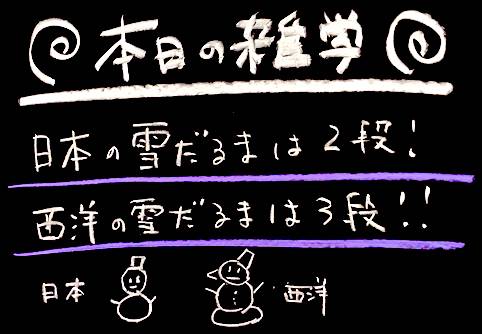 本日の雑学
日本の雪だるまは2段!
西洋の雪だるまは3段!!
日本
西洋